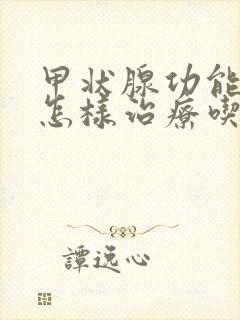 甲状腺功能
怎样治疗喫
譚逸心